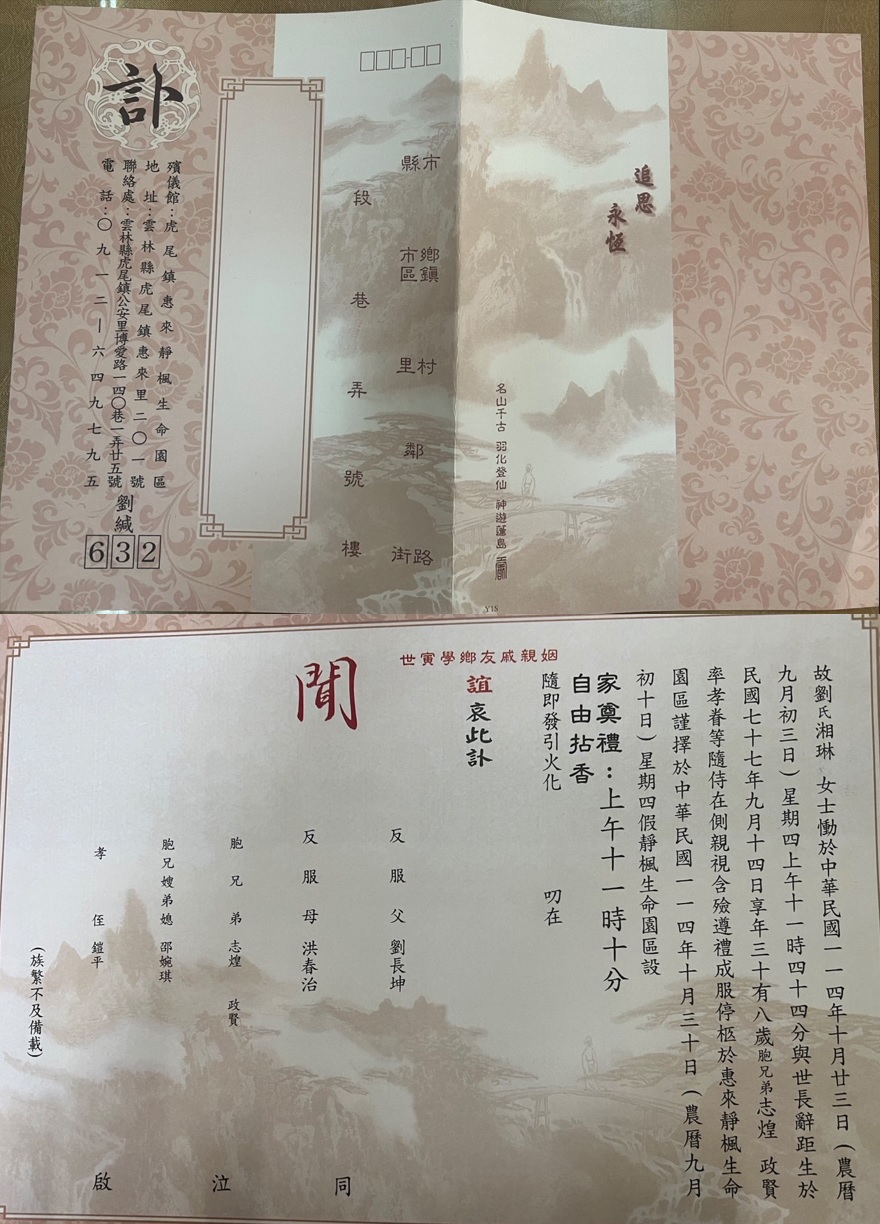 訃
殯儀館：虎尾鎮惠來靜楓生命園區
地址：雲林縣虎尾鎮惠來里二〇一號
聯絡處：雲林縣虎尾鎮公安里博愛路一四〇巷一弄廿五號
電話：〇九一二—六四九七九五
劉緘
632
縣市
鄉鎮
市區
村里
鄰
路街
段
巷
弄
號
樓
追思
永恆
名山千古 羽化登仙 神遊蓬島
Y15
故劉氏湘琳 女士慟於中華民國一一四年十月廿三日（農曆
九月初三日）星期四上午十一時四十四分與世長辭距生於
民國七十七年九月十四日享年三十有八歲胞兄弟志煌 政賢
率孝眷等隨侍在側親視含殮遵禮成服停柩於惠來靜楓生命
園區謹擇於中華民國一一四年十月三十日（農曆九月
初十日）星期四假靜楓生命園區設
家奠禮：上午十一時十分
自由拈香
隨即發引火化 叨在
姻親戚友鄉學寅世
誼哀此訃
聞
反服父 劉長坤
反服母 洪春治
胞兄弟 志煌 政賢
胞兄嫂弟媳 邵婉琪
孝侄 鎧平
（族繁不及備載）
同泣啟